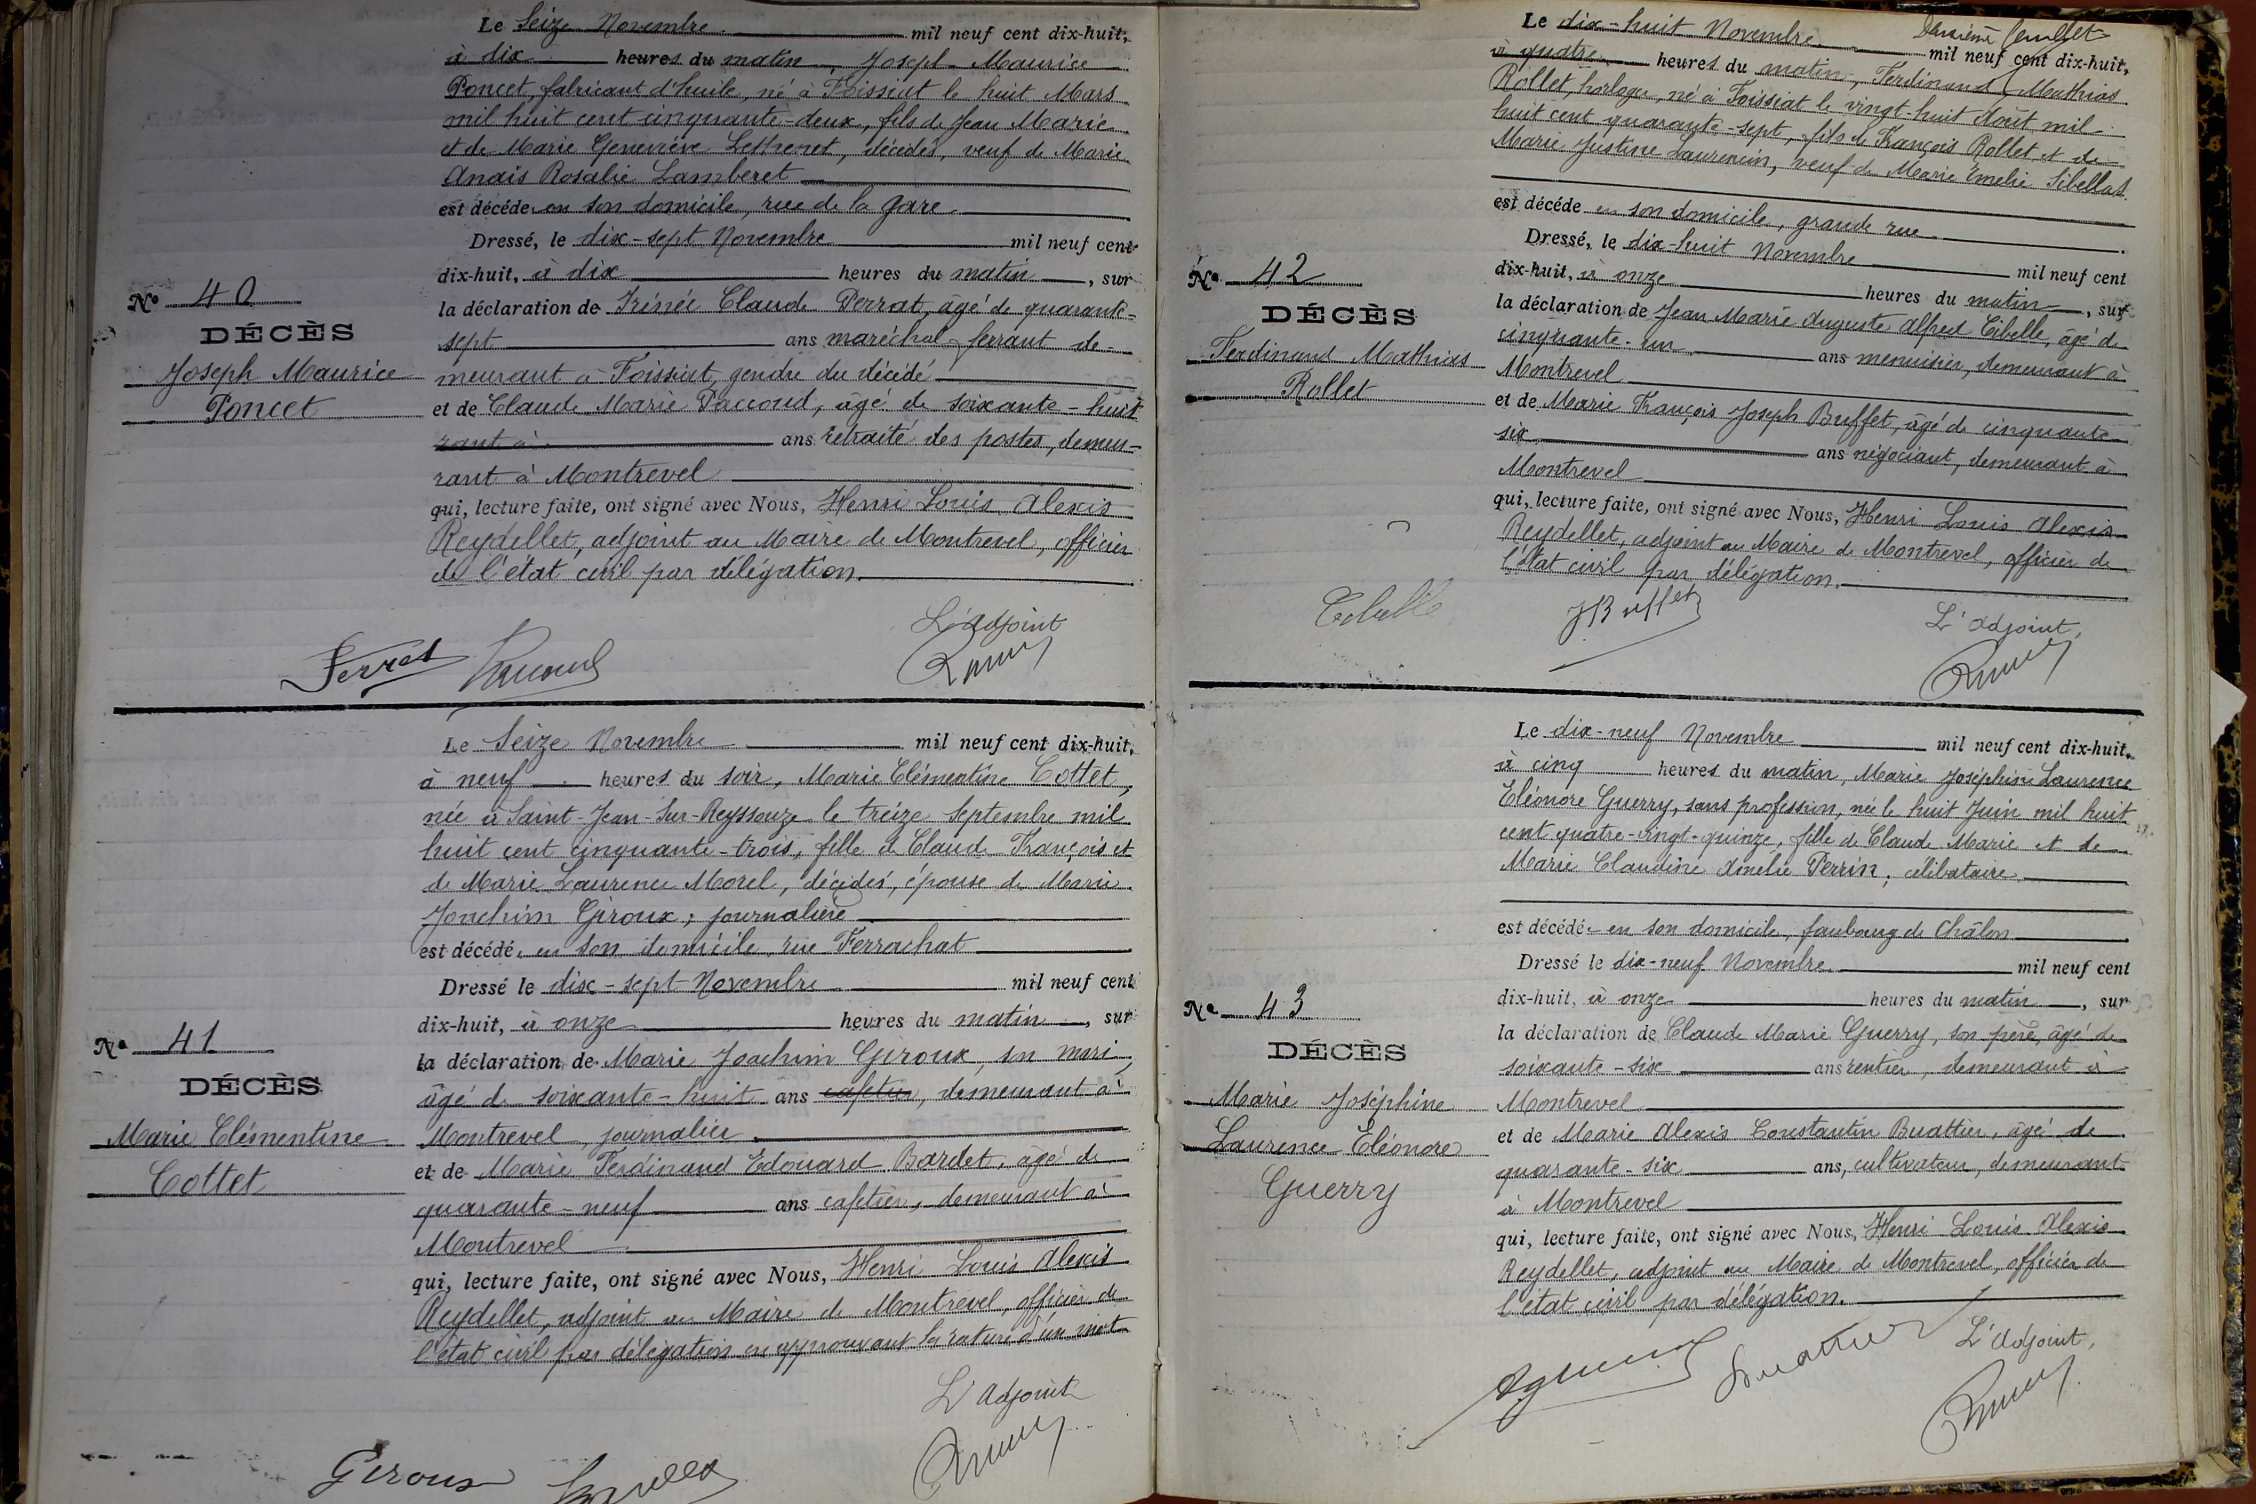 Le Seize Novembre mil neuf cent dix-huit,
à dix heures du matin, Joseph Maurice
Poncet, fabricant d'huile, né à Foissiat le huit Mars
mil huit cent cinquante-deux, fils de Jean Marie
et de Marie Geneviève, décédés, veuf de Marie
Anaïs Rosalie Lamberet
est décédé en son domicile, rue de la gare.
Dressé, le dix-sept Novembre mil neuf cent
dix-huit, à dix heures du matin, sur
la déclaration de Irénée Claude Perrat, âgé de quarante-
sept ans maréchal ferrant de-
meurant à Foissiat, gendre du décédé
et de Claude Marie Paccoud, âgé de soixante-huit
rant à ans retraité des postes, demeu-
rant à Montrevel
qui, lecture faite, ont signé avec Nous, Henri Louis Alexis
Reydellet, adjoint au Maire de Montrevel, officier
de l'état civil par délégation.
N° 40
DÉCÈS
Joseph Maurice
Poncet
L'adjoint
Perrat Paccoud
Le Seize Novembre mil neuf cent dix-huit,
à neuf heures du soir, Marie Clémentine Cottet,
née à Saint-Jean-Sur-Reyssouze le treize Septembre mil
huit cent cinquante-trois, fille de Claude François et
de Marie Laurence Morel, décédés, épouse de Marie
Joachim Giroux, journalière
est décédée en son domicile rue Ferrachat
Dressé le dix-sept Novembre mil neuf cent
dix-huit, à onze heures du matin, sur
la déclaration de Marie Joachim Giroux, son mari,
âgé de soixante-huit ans cafetier, demeurant à
Montrevel, journalier
et de Marie Ferdinand Edouard Bardet, âgé de
quarante-neuf ans cafetier, demeurant à
Montrevel
qui, lecture faite, ont signé avec Nous, Henri Louis Alexis
Reydellet, adjoint au Maire de Montrevel, officier de
l'état civil par délégation en approuvant la rature d'un mot
N° 41
DÉCÈS
Marie Clémentine
Cottet
L'adjoint
Giroux
Deuxième feuillet
Le dix-huit Novembre mil neuf cent dix-huit,
à quatre heures du matin, Ferdinand Mathias
Rollet, horloger, né à Foissiat le vingt-huit Août mil
huit cent quarante-sept, fils de François Rollet et de
Marie Justine Laurencin, veuf de Marie Emelie Sibellas
est décédé en son domicile, grande rue
Dressé, le dix-huit Novembre mil neuf cent
dix-huit, à onze heures du matin, sur
la déclaration de Jean Marie Auguste Alfred Cibelle, âgé de
cinquante-un ans menuisier, demeurant à
Montrevel
et de Marie François Joseph Buffet, âgé de cinquante
six ans négociant, demeurant à
Montrevel
qui, lecture faite, ont signé avec Nous, Henri Louis Alexis
Reydellet, adjoint au Maire de Montrevel, officier de
l'état civil par délégation.
N° 42
DÉCÈS
Ferdinand Mathias
Rollet
Cibelle JBuffet L'adjoint,
Le dix-neuf Novembre mil neuf cent dix-huit,
à cinq heures du matin, Marie Joséphine Laurence
Eléonore Guerry, sans profession, née le huit Juin mil huit
cent quatre-vingt-quinze, fille de Claude Marie et de
Marie Claudine Amelie Perrin, célibataire
est décédée en son domicile, faubourg de Châlon
Dressé le dix-neuf Novembre mil neuf cent
dix-huit, à onze heures du matin, sur
la déclaration de Claude Marie Guerry, son père, âgé de
soixante-six ans rentier, demeurant à
Montrevel
et de Marie Alexis Constantin Buattier, âgé de
quarante-six ans, cultivateur, demeurant
à Montrevel
qui, lecture faite, ont signé avec Nous, Henri Louis Alexis
Reydellet, adjoint au Maire de Montrevel, officier de
l'état civil par délégation.
N° 43
DÉCÈS
Marie Joséphine
Laurence Eléonore
Guerry
Buattier L'adjoint,